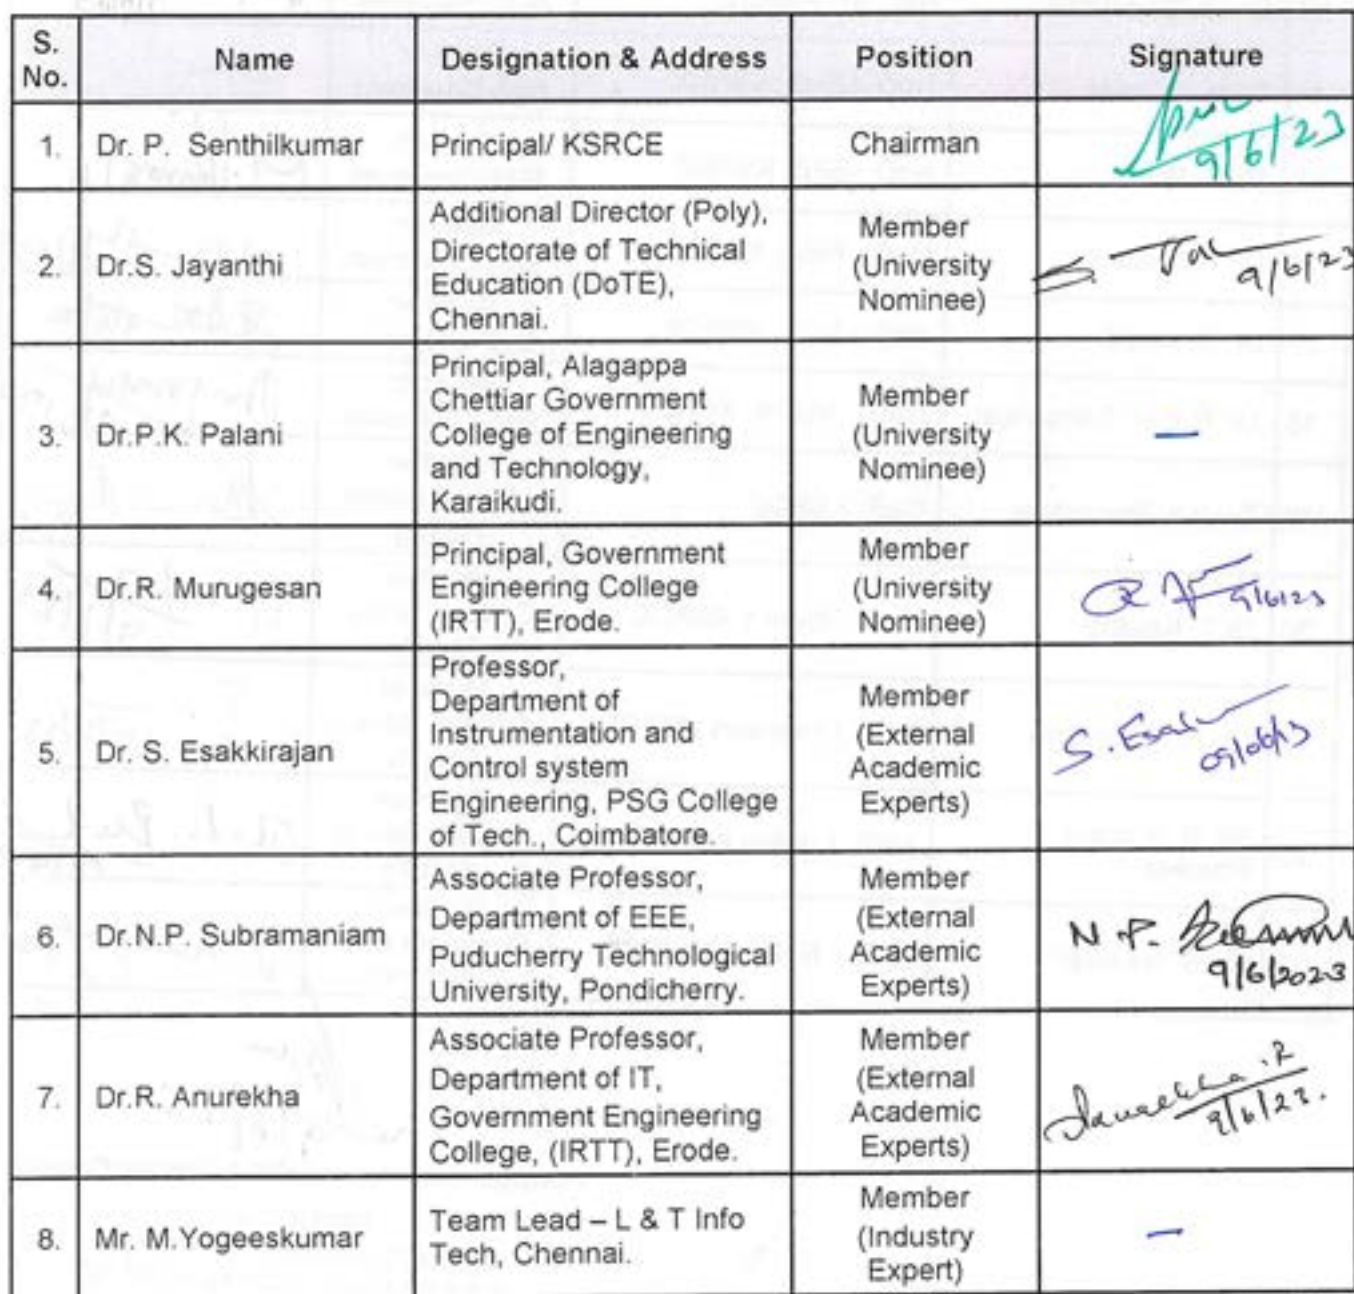 S. No. Name Designation & Address Position Signature
1. Dr. P. Senthilkumar Principal/ KSRCE Chairman
9/6/23
2. Dr.S. Jayanthi Additional Director (Poly),
Directorate of Technical
Education (DoTE),
Chennai.
Member
(University
Nominee)
9/6/23
3. Dr.P.K. Palani Principal, Alagappa
Chettiar Government
College of Engineering
and Technology,
Karaikudi.
Member
(University
Nominee)
–
4. Dr.R. Murugesan Principal, Government
Engineering College
(IRTT), Erode.
Member
(University
Nominee)
9/6/23
5. Dr. S. Esakkirajan Professor,
Department of
Instrumentation and
Control system
Engineering, PSG College
of Tech., Coimbatore.
Member
(External
Academic
Experts)
6. Dr.N.P. Subramaniam Associate Professor,
Department of EEE,
Puducherry Technological
University, Pondicherry.
Member
(External
Academic
Experts)
N.P.
9/6/2023
7. Dr.R. Anurekha Associate Professor,
Department of IT,
Government Engineering
College, (IRTT), Erode.
Member
(External
Academic
Experts)
9/6/23.
8. Mr. M.Yogeeskumar Team Lead – L & T Info
Tech, Chennai.
Member
(Industry
Expert)
–